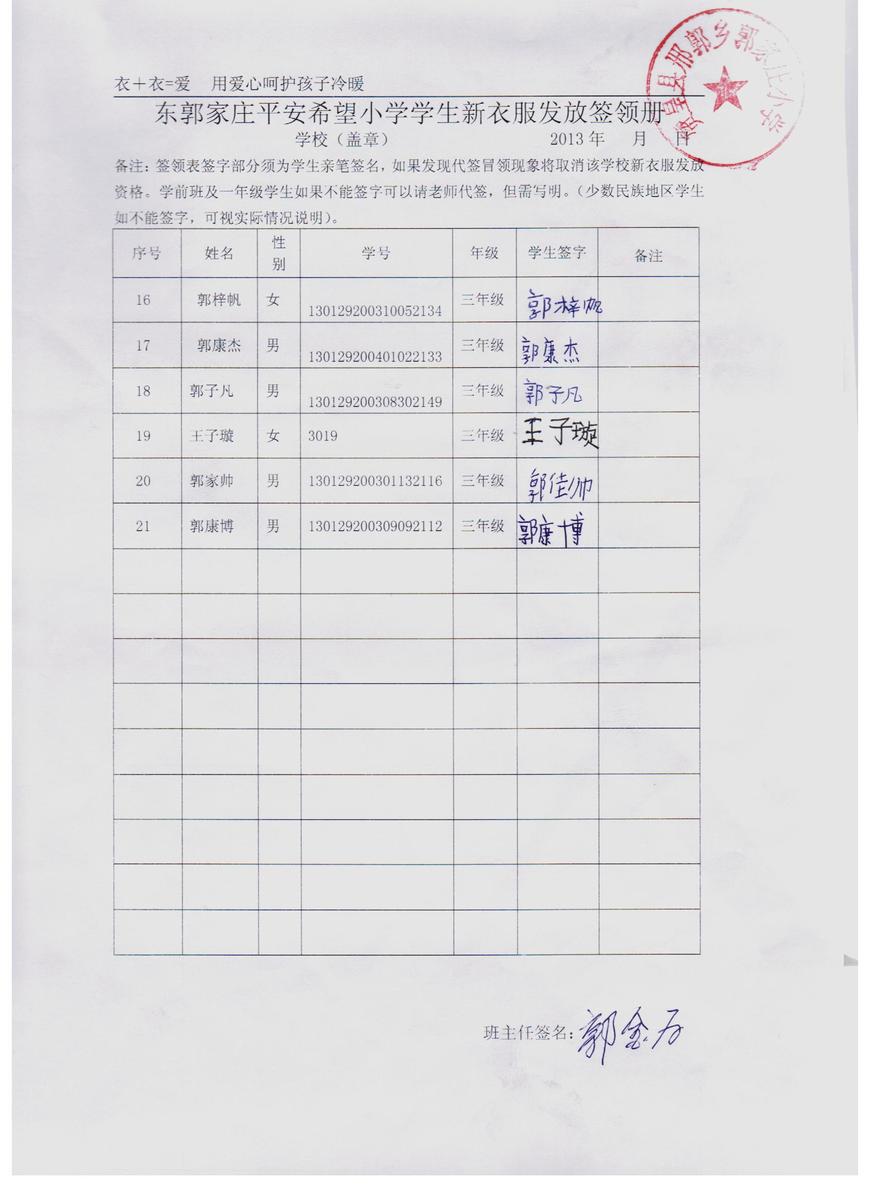 衣＋衣=爱 用爱心呵护孩子冷暖
东郭家庄平安希望小学学生新衣服发放签领册
学校（盖章） 2013 年 月 日
备注：签领表签字部分须为学生亲笔签名，如果发现代签冒领现象将取消该学校新衣服发放
资格。学前班及一年级学生如果不能签字可以请老师代签，但需写明。（少数民族地区学生
如不能签字，可视实际情况说明）。
序号 姓名 性别 学号 年级 学生签字 备注
16 郭梓帆 女 130129200310052134 三年级 郭梓帆
17 郭康杰 男 130129200401022133 三年级 郭康杰
18 郭子凡 男 130129200308302149 三年级 郭子凡
19 王子璇 女 3019 三年级 王子璇
20 郭家帅 男 130129200301132116 三年级 郭佳帅
21 郭康博 男 130129200309092112 三年级 郭康博
班主任签名：郭金
县邢郭乡郭家庄小学